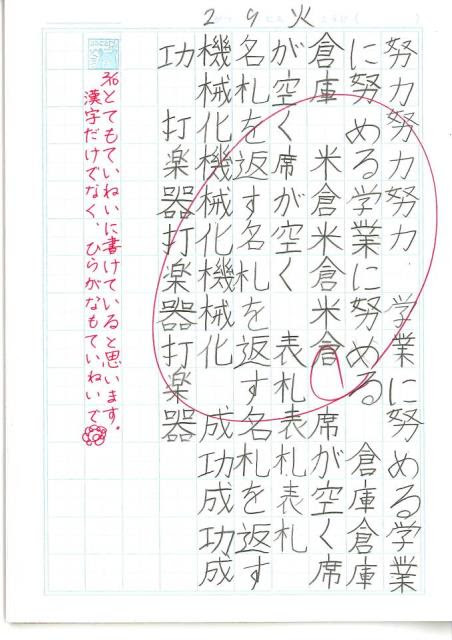 2 9 火
努力努力努力 学業に努める学業
に努める学業に努める 倉庫倉庫
倉庫 米倉米倉米倉 席が空く席
が空く席が空く 表札表札表札
名札を返す名札を返す名札を返す
機械化機械化機械化 成功成功成
功 打楽器打楽器打楽器
2/10 とてもていねいに書けていると思います。
漢字だけでなく、ひらがなもていねいで